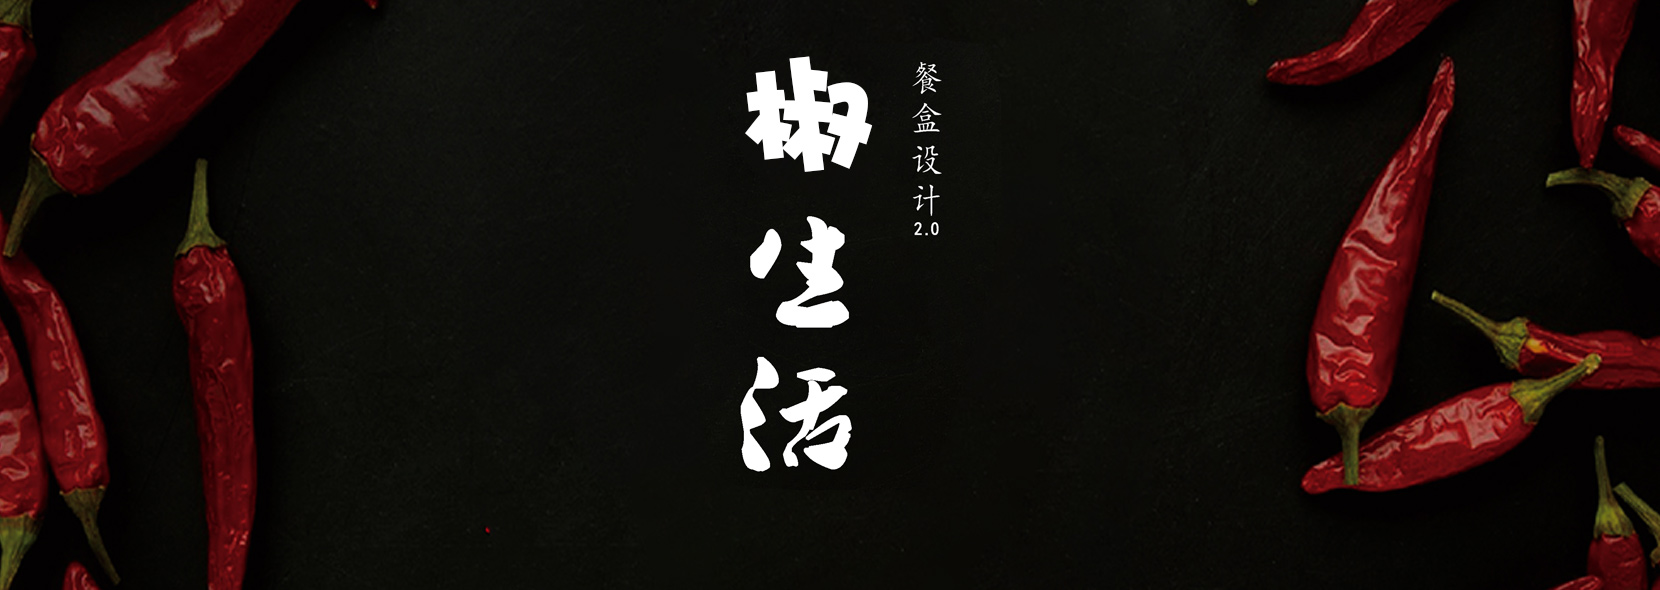 椒生活
餐盒设计2.0